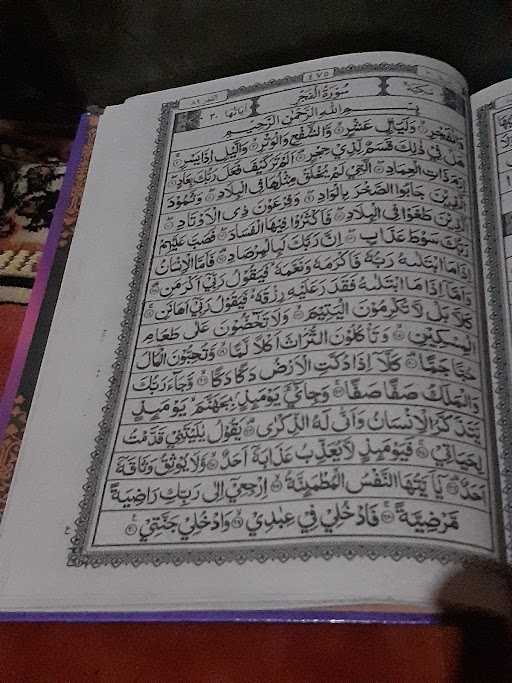 ٤٧٥
الفجر ٨٩
مكية سورة الفجر آياتها ٣٠
بسم الله الرحمن الرحيم
وَالْفَجْرِ ۝ وَلَيَالٍ عَشْرٍ ۝ وَّالشَّفْعِ وَالْوَتْرِ ۝ وَالَّيْلِ اِذَا يَسْرِ ۝
هَلْ فِيْ ذٰلِكَ قَسَمٌ لِّذِيْ حِجْرٍ ۝ اَلَمْ تَرَ كَيْفَ فَعَلَ رَبُّكَ بِعَادٍ ۝
اِرَمَ ذَاتِ الْعِمَادِ ۝ الَّتِيْ لَمْ يُخْلَقْ مِثْلُهَا فِي الْبِلَادِ ۝ وَثَمُوْدَ
الَّذِيْنَ جَابُوا الصَّخْرَ بِالْوَادِ ۝ وَفِرْعَوْنَ ذِى الْاَوْتَادِ ۝
الَّذِيْنَ طَغَوْا فِي الْبِلَادِ ۝ فَاَكْثَرُوْا فِيْهَا الْفَسَادَ ۝ فَصَبَّ عَلَيْهِمْ
رَبُّكَ سَوْطَ عَذَابٍ ۝ اِنَّ رَبَّكَ لَبِالْمِرْصَادِ ۝ فَاَمَّا الْاِنْسَانُ
اِذَا مَا ابْتَلٰىهُ رَبُّهٗ فَاَكْرَمَهٗ وَنَعَّمَهٗ ۙ فَيَقُوْلُ رَبِّيْ اَكْرَمَنِ ۝
وَاَمَّا اِذَا مَا ابْتَلٰىهُ فَقَدَرَ عَلَيْهِ رِزْقَهٗ ۙ فَيَقُوْلُ رَبِّيْ اَهَانَنِ ۝
كَلَّا بَلْ لَّا تُكْرِمُوْنَ الْيَتِيْمَ ۝ وَلَا تَحٰٓضُّوْنَ عَلٰى طَعَامِ
الْمِسْكِيْنِ ۝ وَتَاْكُلُوْنَ التُّرَاثَ اَكْلًا لَّمًّا ۝ وَّتُحِبُّوْنَ الْمَالَ
حُبًّا جَمًّا ۝ كَلَّآ اِذَا دُكَّتِ الْاَرْضُ دَكًّا دَكًّا ۝ وَّجَآءَ رَبُّكَ
وَالْمَلَكُ صَفًّا صَفًّا ۝ وَجِايْٓءَ يَوْمَئِذٍۭ بِجَهَنَّمَ يَوْمَئِذٍ
يَّتَذَكَّرُ الْاِنْسَانُ وَاَنّٰى لَهُ الذِّكْرٰى ۝ يَقُوْلُ يٰلَيْتَنِيْ قَدَّمْتُ
لِحَيَاتِيْ ۝ فَيَوْمَئِذٍ لَّا يُعَذِّبُ عَذَابَهٗٓ اَحَدٌ ۝ وَّلَا يُوْثِقُ وَثَاقَهٗٓ
اَحَدٌ ۝ يٰٓاَيَّتُهَا النَّفْسُ الْمُطْمَئِنَّةُ ۝ ارْجِعِيْٓ اِلٰى رَبِّكِ رَاضِيَةً
مَّرْضِيَّةً ۝ فَادْخُلِيْ فِيْ عِبٰدِيْ ۝ وَادْخُلِيْ جَنَّتِيْ ۝